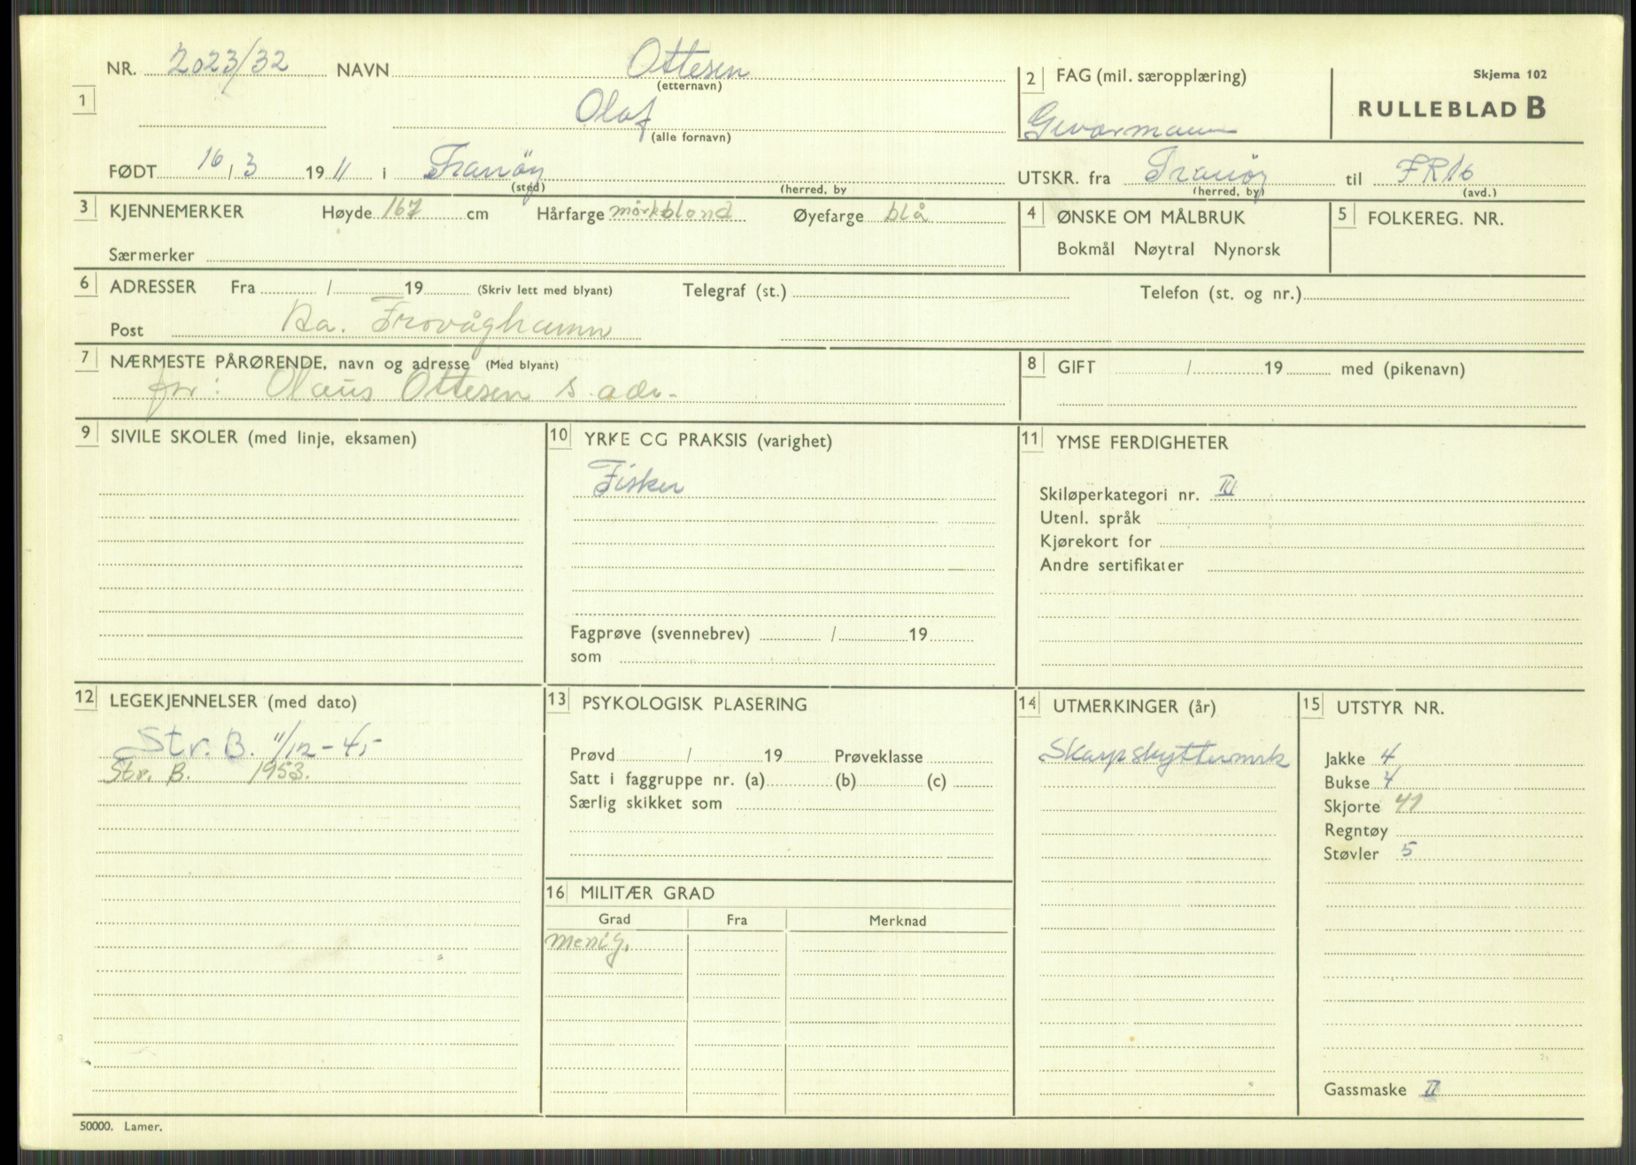 NR. 2023/32 NAVN Ottesen
(etternavn)
1
Olaf
(alle fornavn)
2 FAG (mil. særopplæring)
Geværmann
Skjema 102
RULLEBLAD B
FØDT 16/3 1911 i Tranöy
(sted) (herred, by
UTSKR. fra Tranöy til FR16
(herred, by) (avd.)
3 KJENNEMERKER Høyde 167 cm Hårfarge mörkblond Øyefarge blå
Særmerker
4 ØNSKE OM MÅLBRUK
Bokmål Nøytral Nynorsk
5 FOLKEREG. NR.
6 ADRESSER Fra / 19 (Skriv lett med blyant) Telegraf (st.) Telefon (st. og nr.)
Post Aa. Frovåghamn
7 NÆRMESTE PÅRØRENDE, navn og adresse (Med blyant)
far: Olaus Ottesen s. adr.
8 GIFT / 19 med (pikenavn)
9 SIVILE SKOLER (med linje, eksamen)
10 YRKE OG PRAKSIS (varighet)
Fisker
Fagprøve (svennebrev) / 19
som
11 YMSE FERDIGHETER
Skiløperkategori nr. III
Utenl. språk
Kjørekort for
Andre sertifikater
12 LEGEKJENNELSER (med dato)
Str. B. 11/12-45
Str. B. 1953.
13 PSYKOLOGISK PLASERING
Prøvd / 19 Prøveklasse
Satt i faggruppe nr. (a) (b) (c)
Særlig skikket som
14 UTMERKINGER (år)
Skarpskyttermrk
15 UTSTYR NR.
Jakke 4
Bukse 4
Skjorte 41
Regntøy
Støvler 5
Gassmaske II
16 MILITÆR GRAD
Grad Fra Merknad
menig.
50000. Lamer.